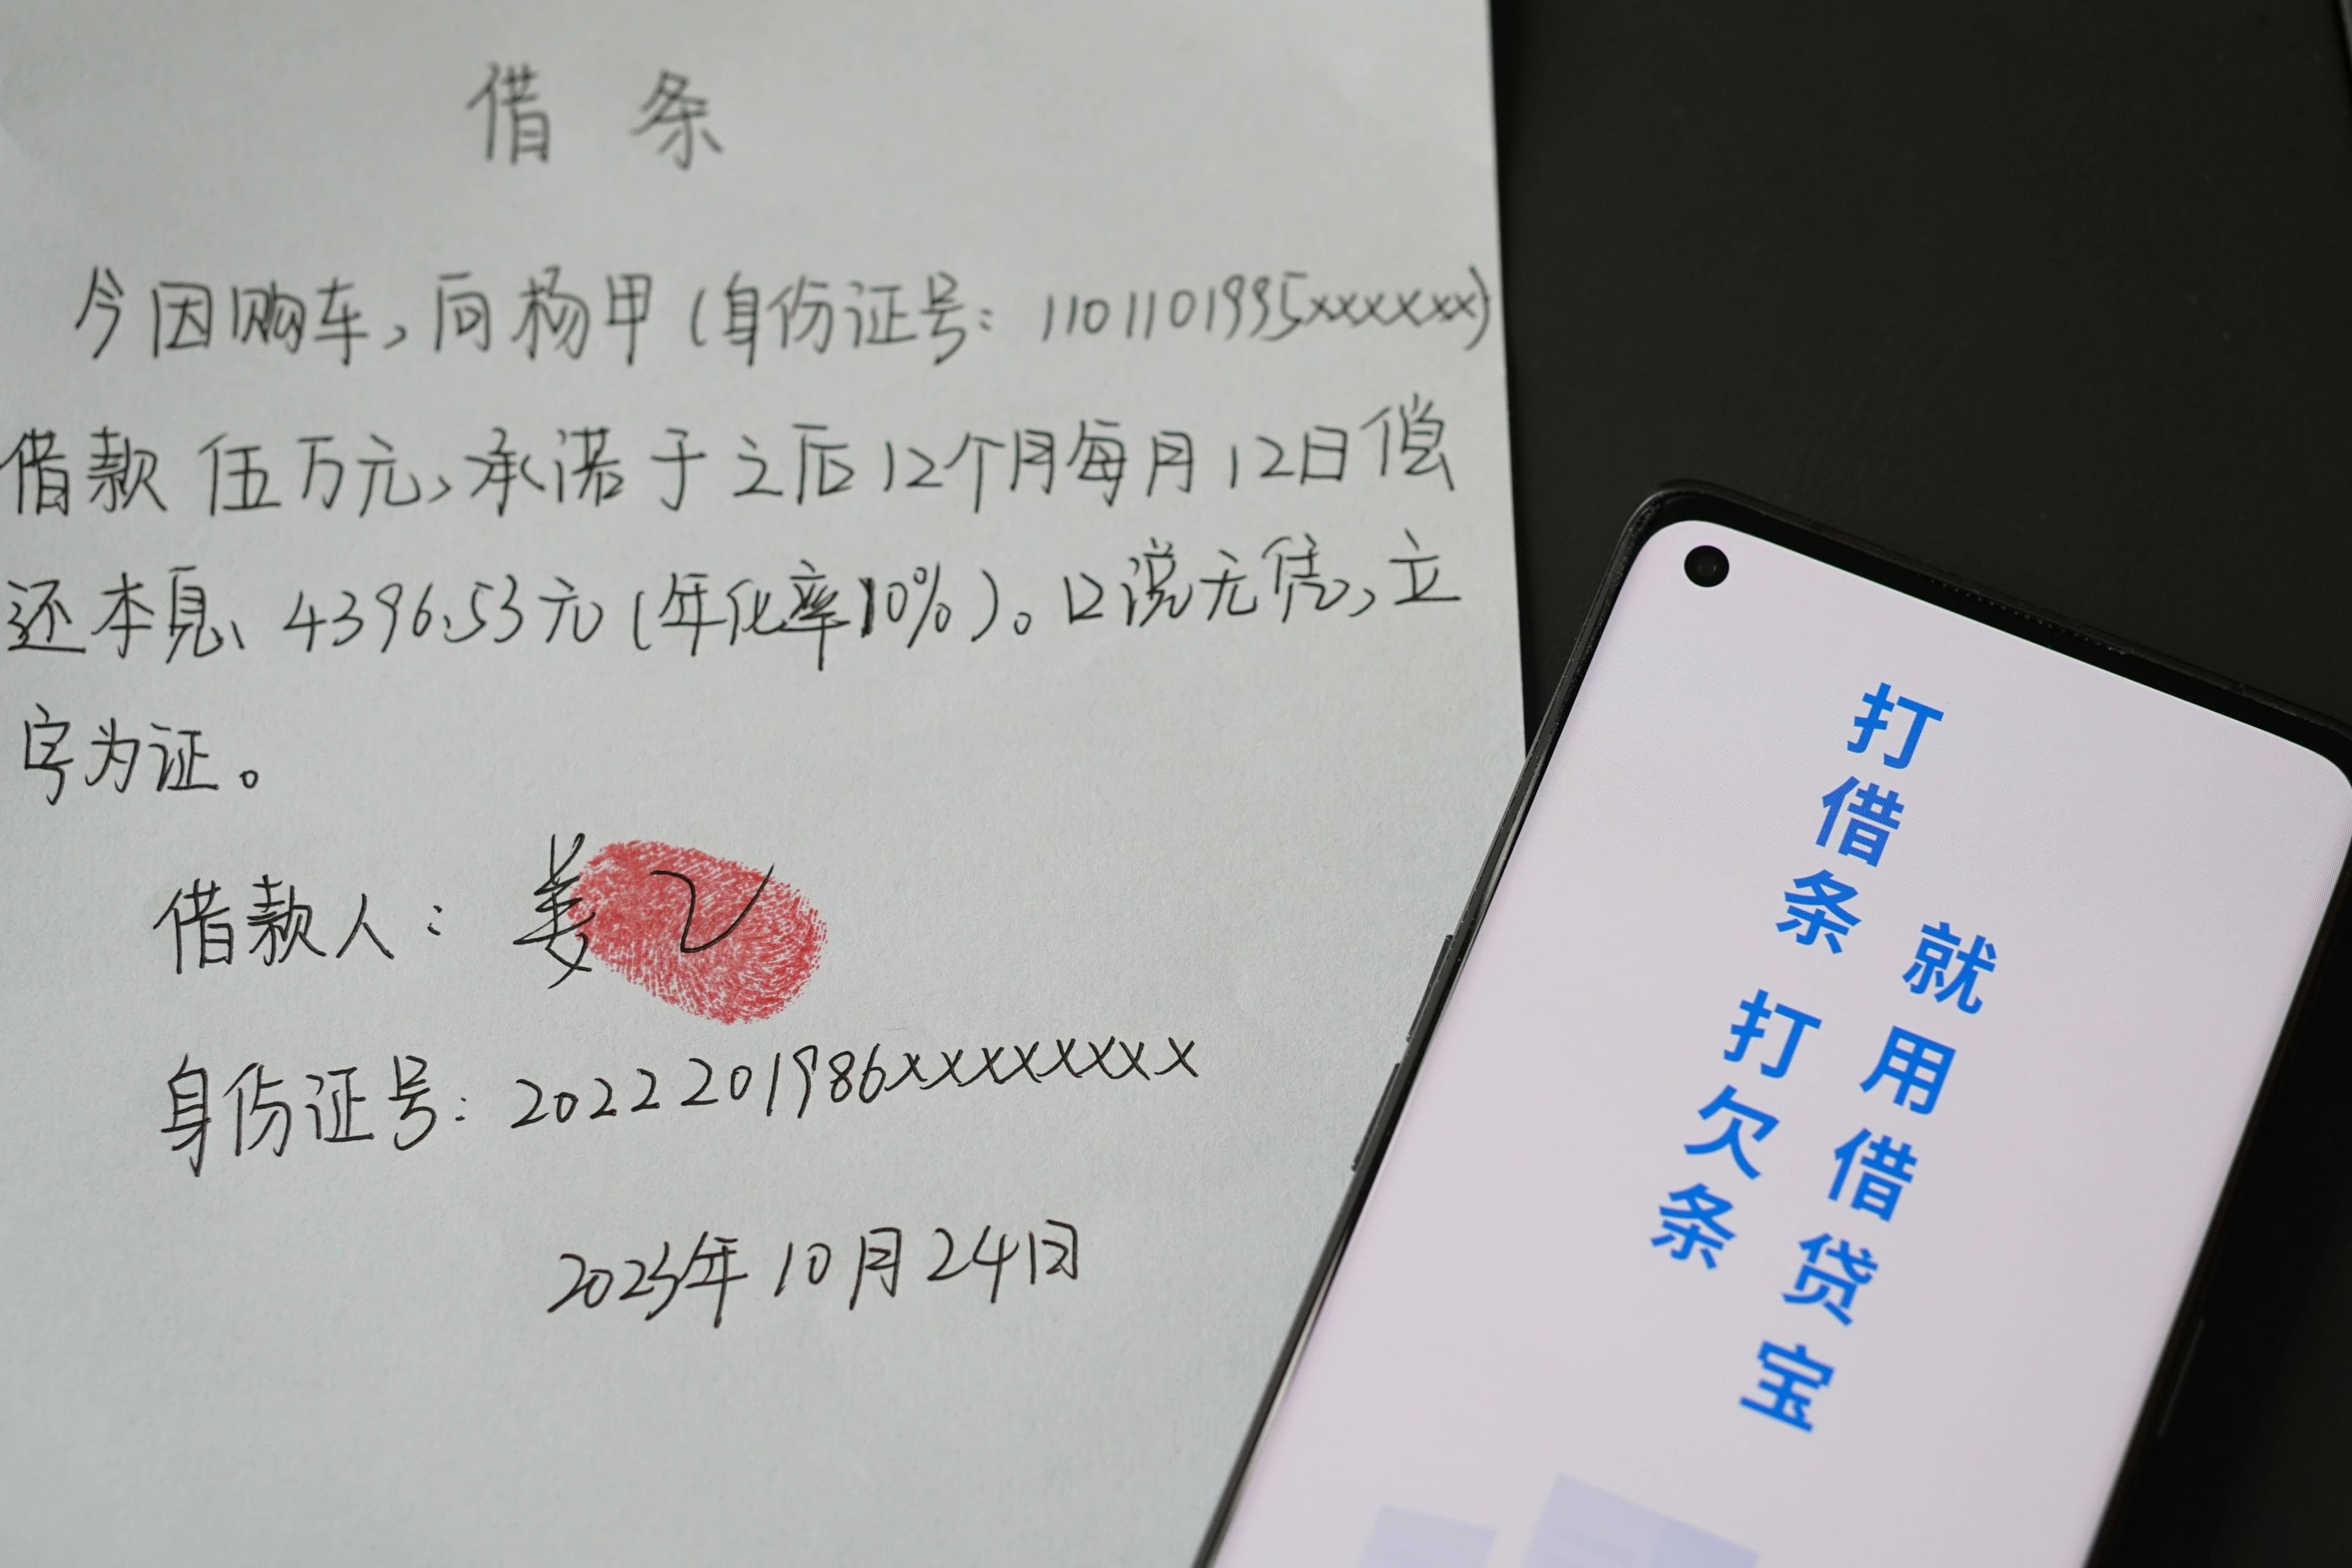 借条
今因购车,向杨甲(身份证号:1101101995xxxxxxx)
借款伍万元,承诺于之后12个月每月12日偿
还本息、4396.53元(年化率10%)。口说无凭,立
字为证。
借款人:姜乙
身份证号:2022201986xxxxxxxx
2023年10月24日
打借条 打欠条
就用借贷宝